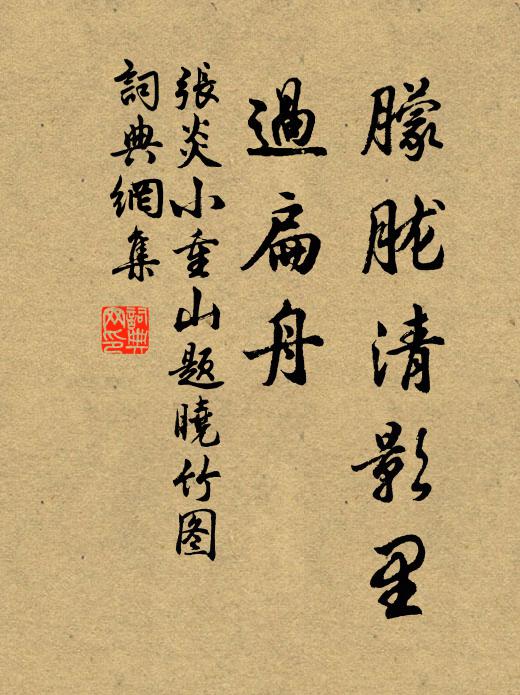 朦胧清影里
過扁舟
張炎小重山題曉竹图
詞典網集
詞典
网印